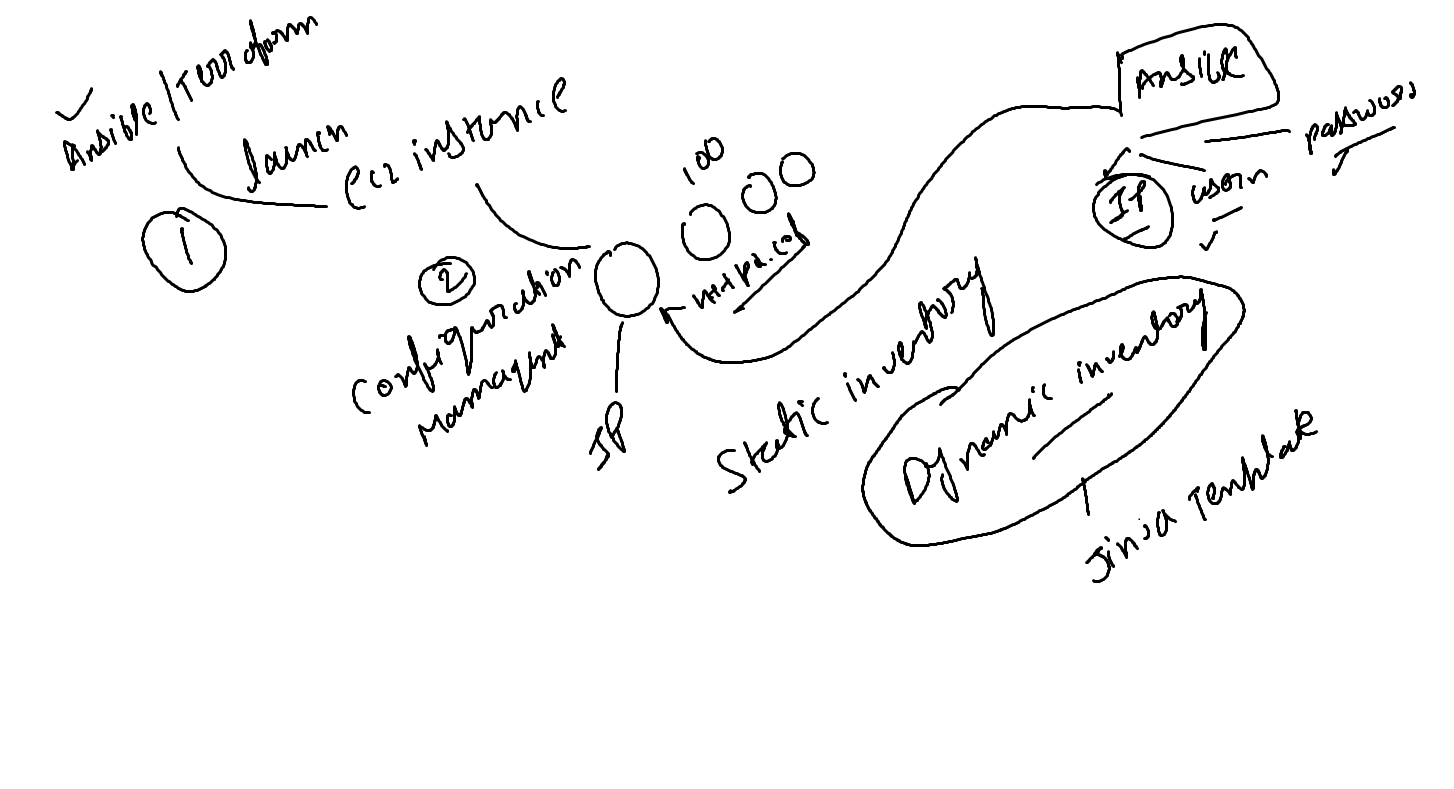 Ansible/Terraform
launch
ec2 instance
1
2
Configuration
Management
IP
100
httpd.conf
ANSIBLE
IP
user
password
Static inventory
Dynamic inventory
Jinja Template